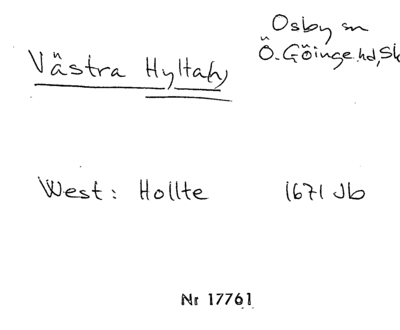 Osby sn
Västra Hyltan
Ö. Göinge hd, Sk
West: Hollte 1671 Jb
Nr 17761